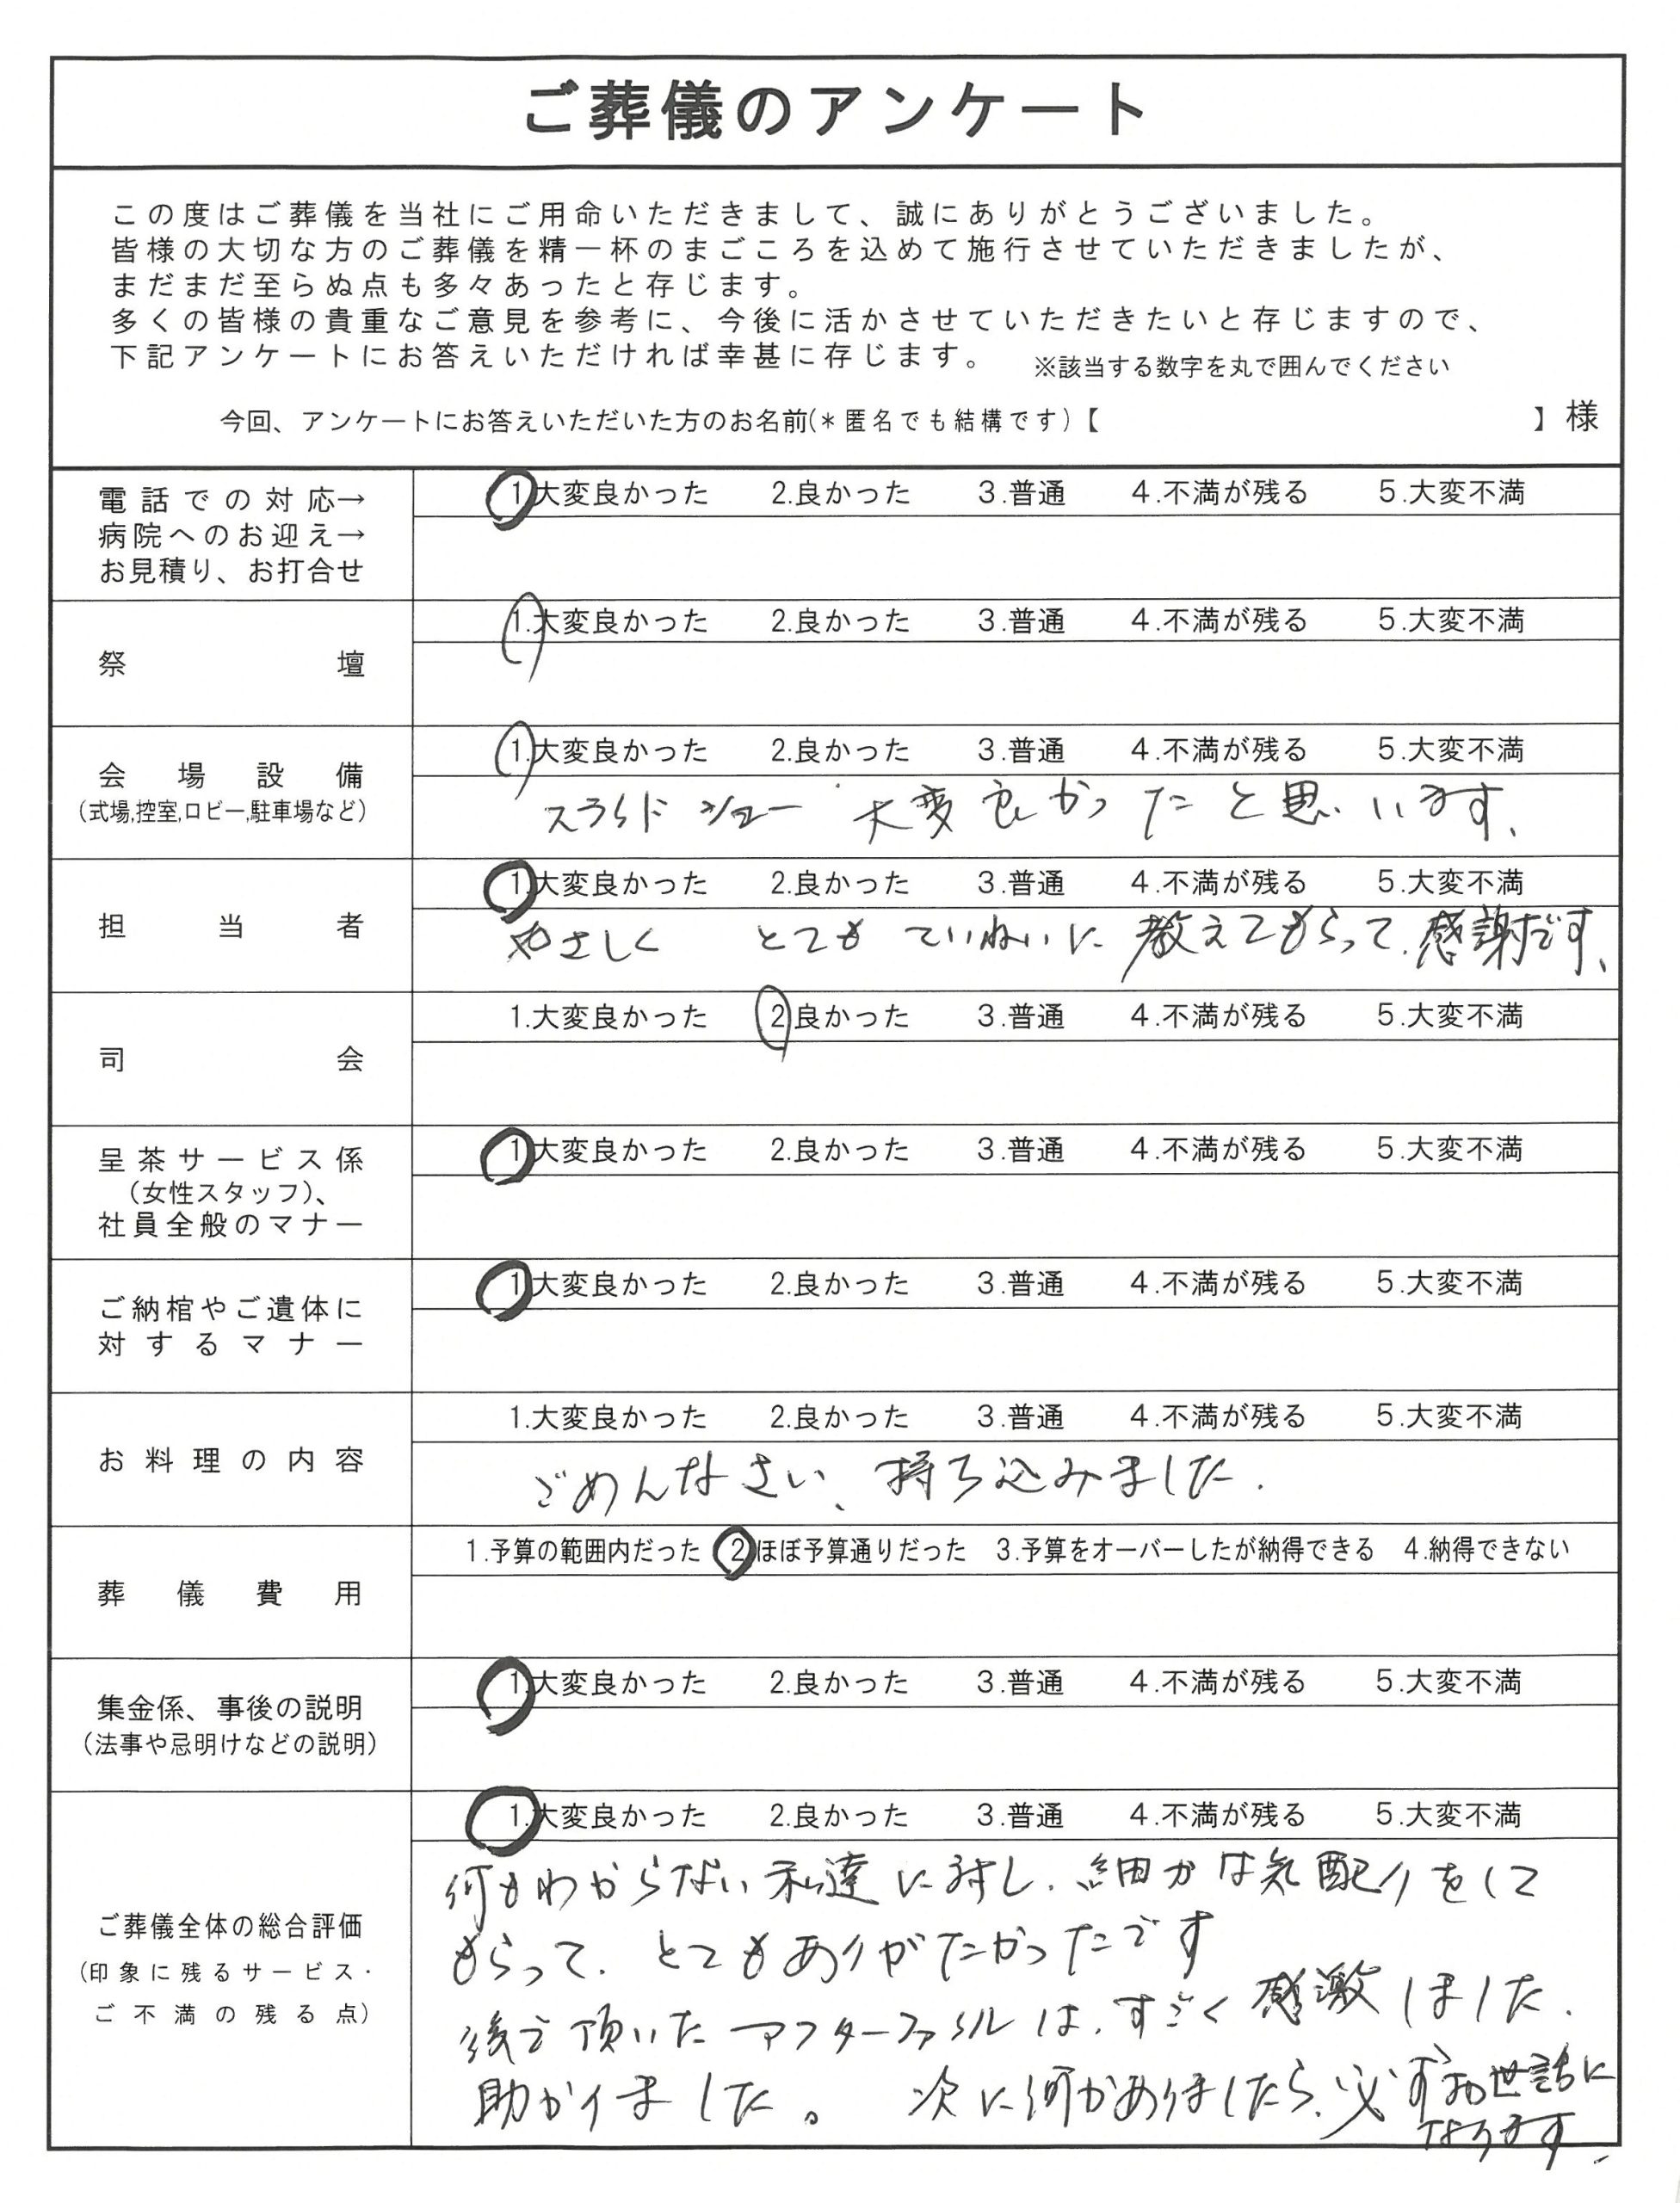 ご葬儀のアンケート
この度はご葬儀を当社にご用命いただきまして、誠にありがとうございました。
皆様の大切な方のご葬儀を精一杯のまごころを込めて施行させていただきましたが、
まだまだ至らぬ点も多々あったと存じます。
多くの皆様の貴重なご意見を参考に、今後に活かさせていただきたいと存じますので、
下記アンケートにお答えいただければ幸甚に存じます。 ※該当する数字を丸で囲んでください
今回、アンケートにお答えいただいた方のお名前(*匿名でも結構です)【 】様
電話での対応→
病院へのお迎え→
お見積り、お打合せ
1.大変良かった 2.良かった 3.普通 4.不満が残る 5.大変不満
祭壇
1.大変良かった 2.良かった 3.普通 4.不満が残る 5.大変不満
会場設備
(式場,控室,ロビー,駐車場など)
1.大変良かった 2.良かった 3.普通 4.不満が残る 5.大変不満
スライドショー 大変良かったと思います、
担当者
1.大変良かった 2.良かった 3.普通 4.不満が残る 5.大変不満
やさしく とても ていねいに 教えてもらって、感謝です、
司会
1.大変良かった 2.良かった 3.普通 4.不満が残る 5.大変不満
呈茶サービス係
(女性スタッフ)、
社員全般のマナー
1.大変良かった 2.良かった 3.普通 4.不満が残る 5.大変不満
ご納棺やご遺体に
対するマナー
1.大変良かった 2.良かった 3.普通 4.不満が残る 5.大変不満
お料理の内容
1.大変良かった 2.良かった 3.普通 4.不満が残る 5.大変不満
ごめんなさい、持ち込みました.
葬儀費用
1.予算の範囲内だった 2.ほぼ予算通りだった 3.予算をオーバーしたが納得できる 4.納得できない
集金係、事後の説明
(法事や忌明けなどの説明)
1.大変良かった 2.良かった 3.普通 4.不満が残る 5.大変不満
ご葬儀全体の総合評価
(印象に残るサービス・
ご不満の残る点)
1.大変良かった 2.良かった 3.普通 4.不満が残る 5.大変不満
何もわからない私達に対し、細かな気配りをして
もらって、とてもありがたかったです
後で頂いたアフターファイルは、すごく感激しました.
助かりました。 次に何かありましたら、必ずお世話に
なります.